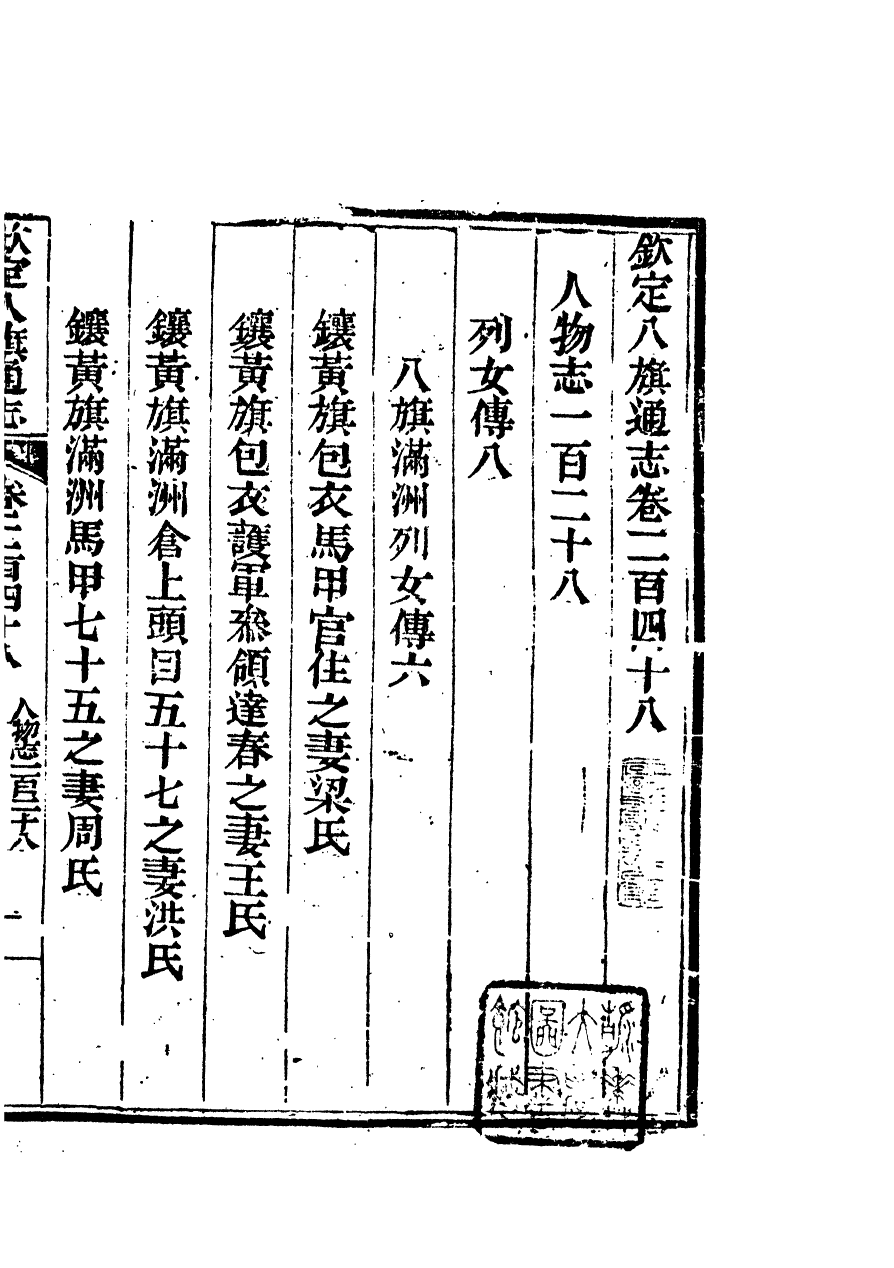 欽定八旗通志卷二百四十八
人物志一百二十八
列女傳八
八旗滿洲列女傳六
鑲黃旗包衣馬甲官住之妻梁氏
鑲黃旗包衣護軍叅領達春之妻王氏
鑲黃旗滿洲倉上頭目五十七之妻洪氏
鑲黃旗滿洲馬甲七十五之妻周氏
欽定八旗通志
卷二百四十八
人物志一百二十八
一